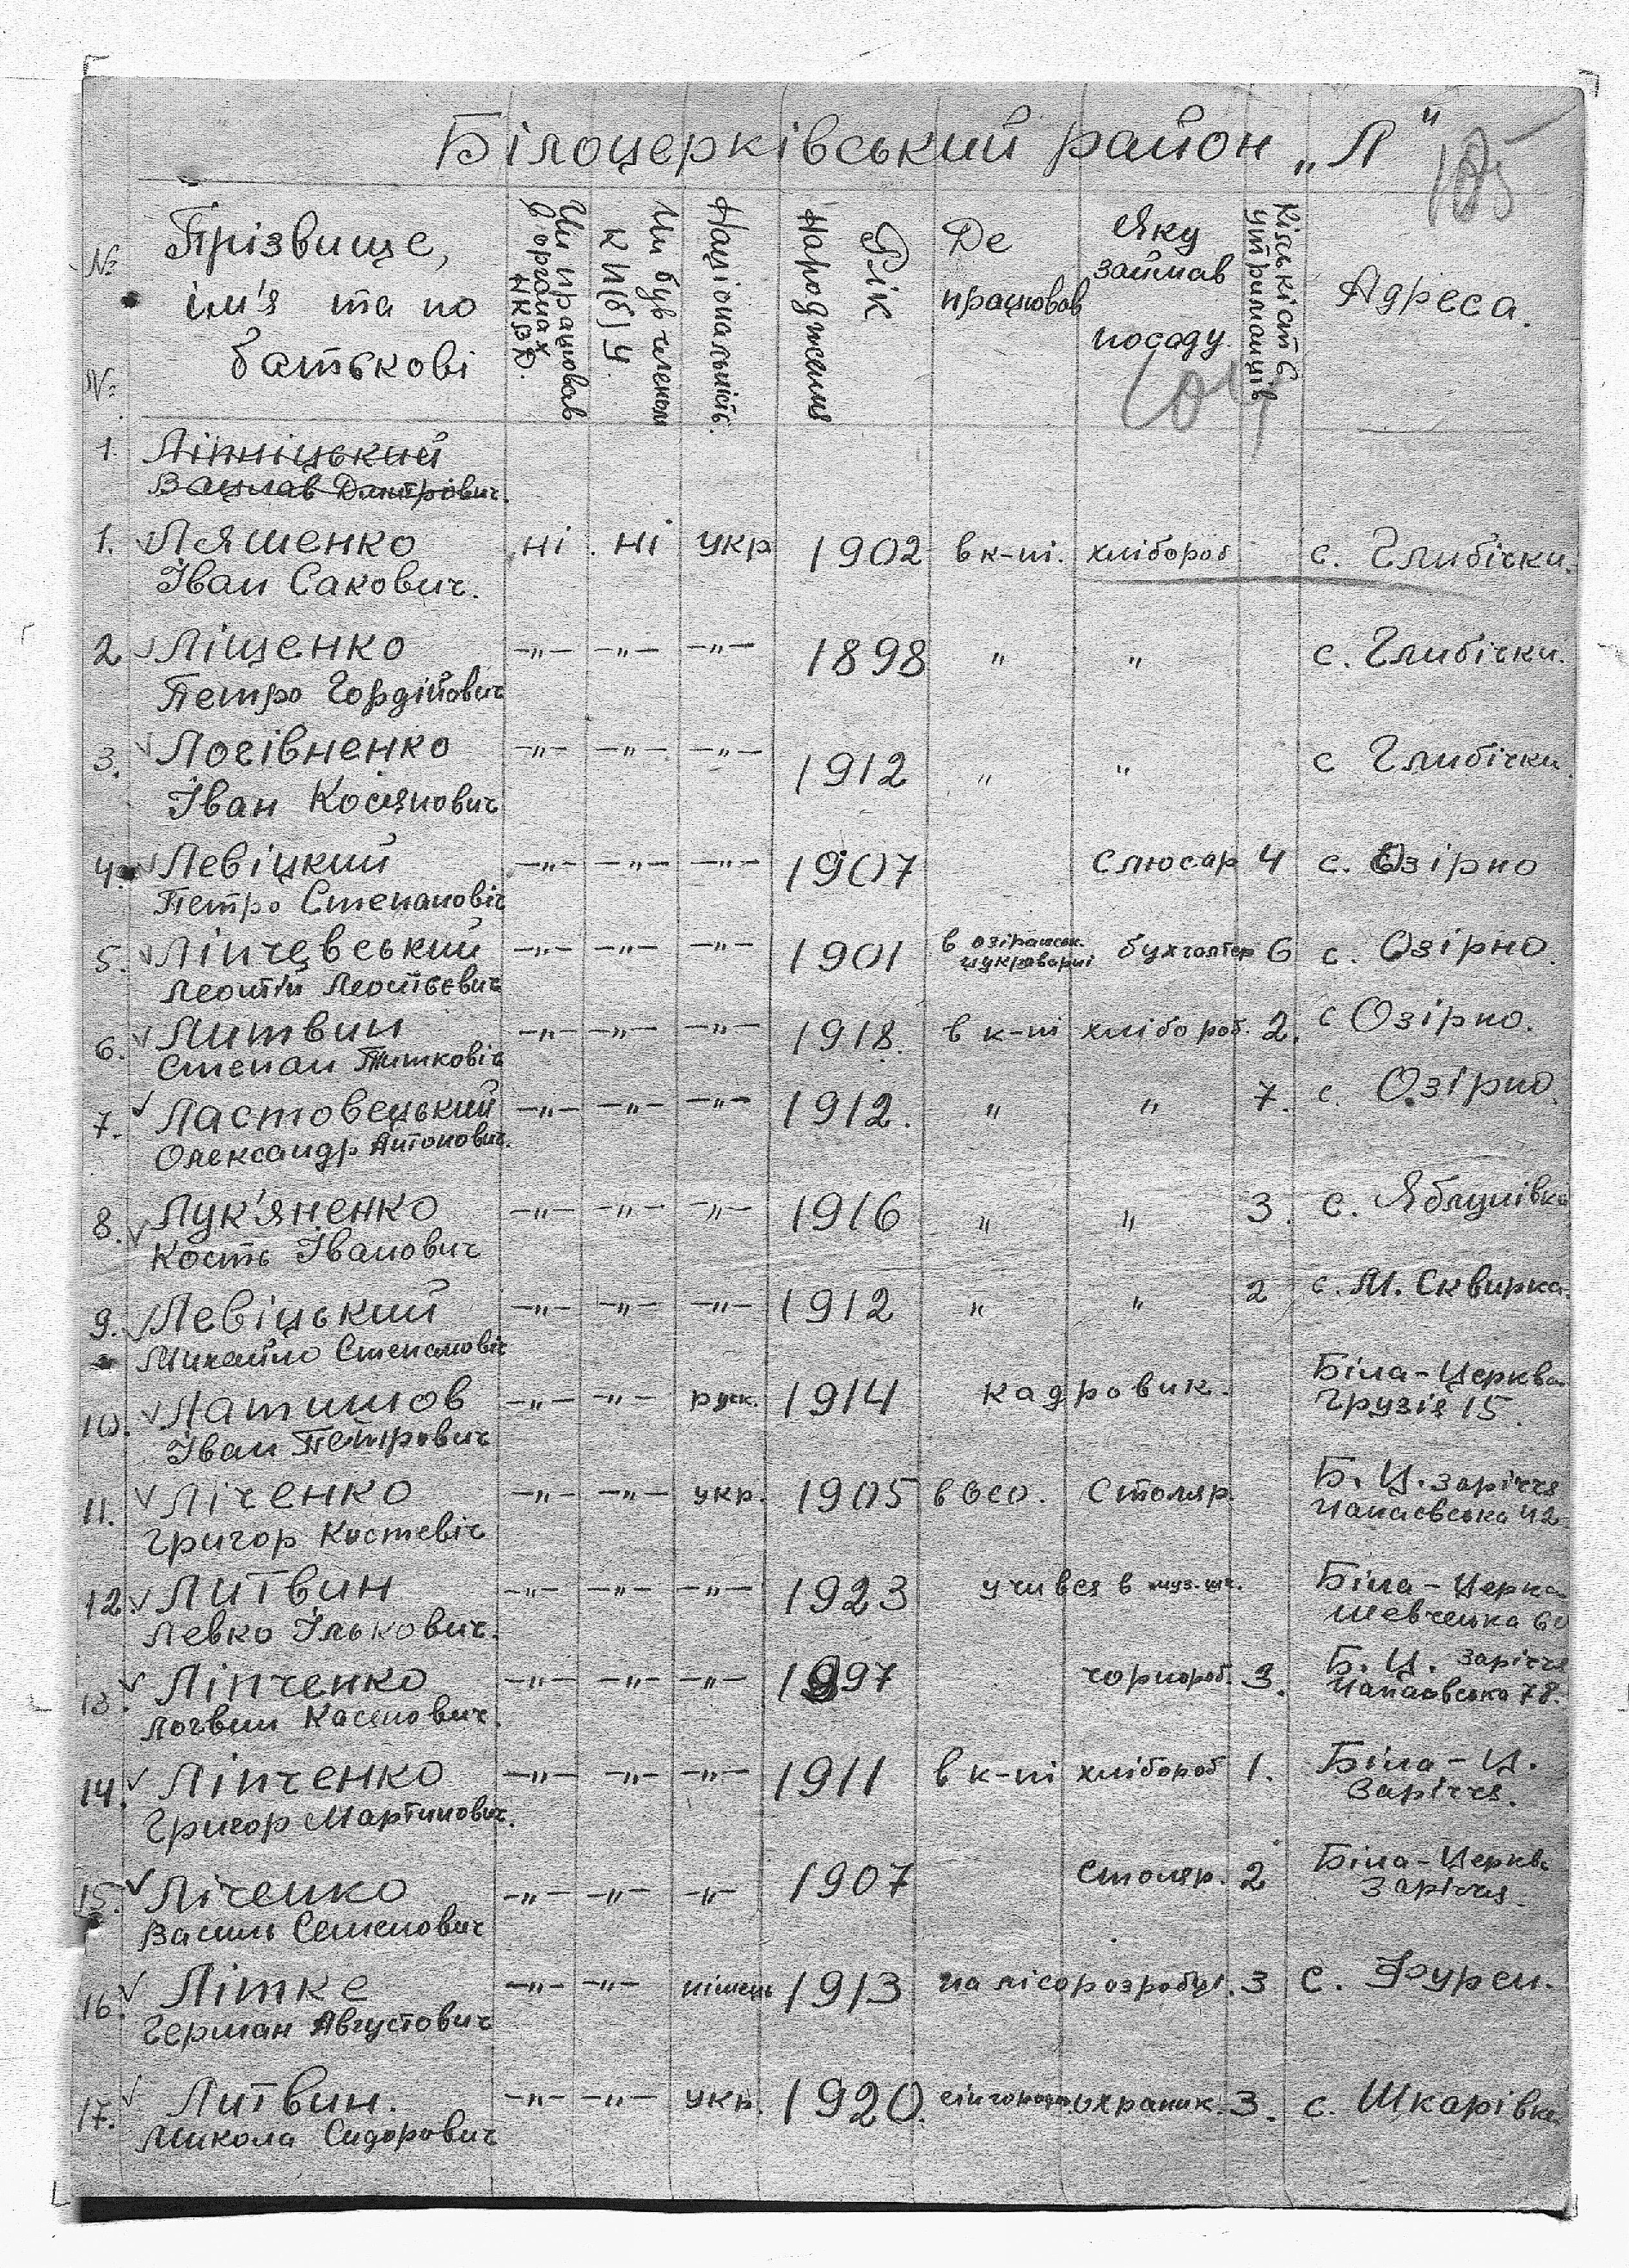 Білоцерківський район „Л"
105
№ №
Прізвище,
ім'я та по
батькові
Чи працював
в органах
НКВД.
Чи був членом
КП(б)У.
Національність.
Рік
народження
Де
працював
Яку
займав
посаду
Кількість
утриманців
Адреса.
1. Ліпніцький
Вацлав Дмитрович.
1. Ляшенко ні ні укр 1902 в к-пі. хлібороб с. Глибічки.
Іван Сакович.
2 Ліщенко -"- -"- -"- 1898 " " с. Глибічки.
Петро Гордійович
3. Логівненко -"- -"- -"- 1912 " " с Глибічки.
Іван Косянович
4. Левіцкий -"- -"- -"- 1907 слюсар 4 с. Озірно
Петро Степановіч
5. Ліпчевський -"- -"- -"- 1901 в озірянск. цукроварні бухгалтер 6 с. Озірно.
Леонтій Леонтієвич
6. Литвин -"- -"- -"- 1918. в к-пі хлібороб. 2. с Озірно.
Степан Тимковіч
7. Ластовецький -"- -"- -"- 1912. " " 7. с. Озірно.
Олександр Антонович.
8. Лук'яненко -"- -"- -"- 1916 " " 3. с. Яблунівка
Кость Іванович
9. Левіцький -"- -"- -"- 1912 " " 2 с. М. Сквирка.
Михайло Степановіч
10. Латишов -"- -"- руск. 1914 кадровик. Біла-Церква
Іван Петрович Грузія 15.
11. Ліченко -"- -"- укр. 1905 столяр. Б. Ц. Заріччя
Григор Костевіч Чапаєвська 42
12. Литвин -"- -"- -"- 1923 учився в муз. шк. Біла-Церква
Левко Ількович. Шевченка 60
13. Ліпченко -"- -"- -"- 1897 чорнороб. 3. Б. Ц. Заріччя
Логвин Касянович. Чапаєвська 78.
14. Ліпченко -"- -"- -"- 1911 в к-пі хлібороб 1. Біла-Ц.
Григор Мартинович. Заріччя.
15. Ліченко -"- -"- -"- 1907 столяр. 2 Біла-Церкві
Василь Семенович Заріччя.
16. Літке -"- -"- німець 1913 на лісорозробці. 3 с. Фурси.
Герман Августович
17. Литвин. -"- -"- укр. 1920. охраник. 3. с. Шкарівка
Микола Сидорович